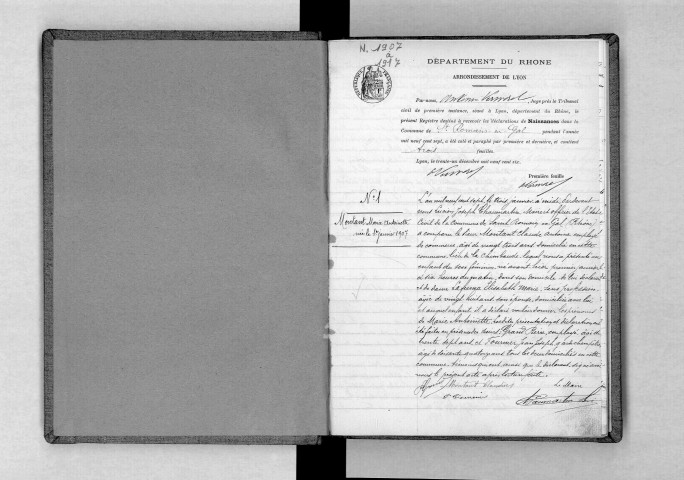 N. 1907
à
1917
DÉPARTEMENT DU RHONE
ARRONDISSEMENT DE LYON
Par nous, Antoine Vernorel, Juge près le Tribunal
civil de première instance, séant à Lyon, département du Rhône, le
présent Registre destiné à recevoir les Déclarations de Naissances dans la
Commune de St Romain en Gal pendant l'année
mil neuf cent sept, a été coté et paraphé par première et dernière, et contient
trois feuilles.
Lyon, le trente-un décembre mil neuf cent six.
Première feuille
N°1
Montant Marie Antoinette
née le 1er janvier 1907
L'an mil neuf cent sept, le trois janvier à midi, Pardevant
nous Joseph Chaumartin, Maire et officier de l'Etat
Civil de la Commune de Saint Romain en Gal (Rhône)
a comparu le sieur Montant Claude Antoine employé
de commerce, âgé de vingt trois ans domicilié en cette
commune, lieu de la Chimbaude, lequel nous a présenté un
enfant du sexe féminin, né avant hier premier
à dix heures du matin, dans son domicile, de lui déclarant
et de dame Elisabeth Marie, sans profession,
âgée de vingt huit ans son épouse, domiciliée avec lui
et auquel enfant il a déclaré vouloir donner les prénoms
de Marie Antoinette, lesdites présentation et déclaration ont
été faites en présence de Grand Pierre, employé, âgé de
trente sept ans et Fournier Jean Joseph, garde champêtre,
âgé de soixante quatorze ans tous les deux domiciliés en cette
commune, témoins qui ont ainsi que le déclarant signé avec
nous le présent acte après lecture faite.
Le Maire
Chaumartin